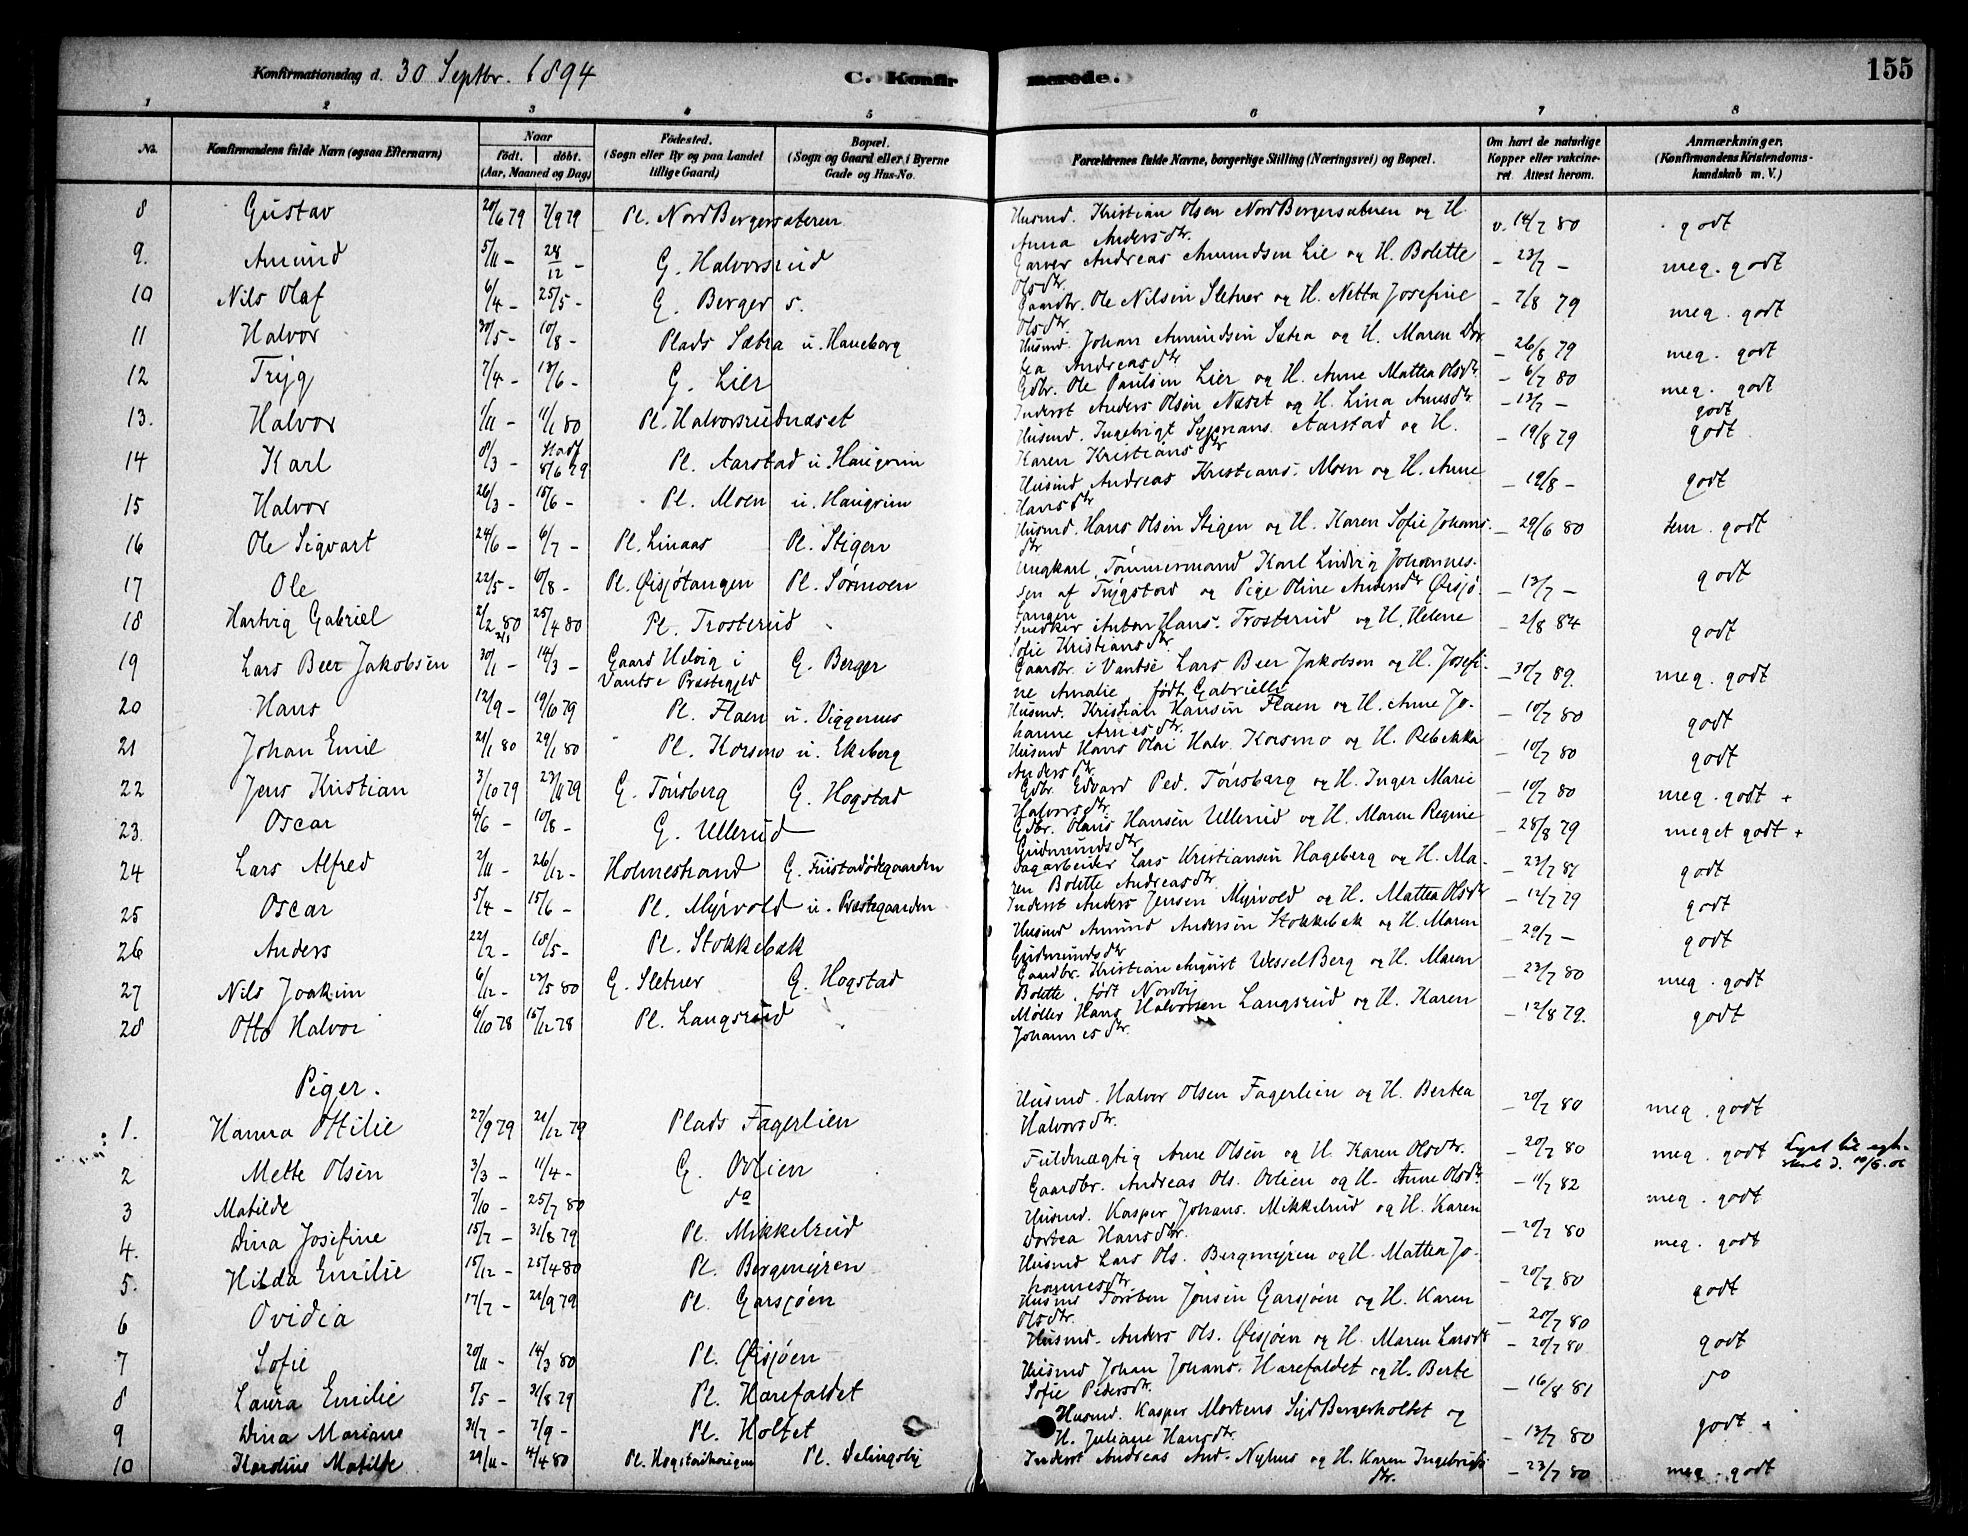 Konfirmationsdag d. 30 Septbr. 1894
C. Konfirmerede.
155
1 2 3 4 5 6 7 8
No. Konfirmandens fulde Navn (ogsaa Efternavn) Naar født. døbt. (Aar, Maaned og Dag) Fødested. (Sogn eller By og paa Landet tillige Gaard) Bopæl. (Sogn og Gaard eller i Byerne Gade og Hus-No. Forældrenes fulde Navne, borgerlige Stilling (Næringsvei) og Bopæl. Om havt de naturlige Kopper eller vakcineret. Attest herom. Anmærkninger. (Konfirmandens Kristendomskundskab m. V.)
8 Gustav 20/6 79 7/9 79 Pl. Nord Bergersæteren Husmd. Kristian Olsen Nord Bergersæteren og H. Anna Andersdtr. v. 14/7 80 godt
9. Amund 5/11 – 28/12 – G. Halvorsrud Garver Andreas Amundsen Lie og H. Bolette Olsdtr. – 23/7 – meg. godt
10 Nils Olaf 6/4 – 25/5 – G. Berger s. Gaardbr. Ole Nilsen Sletner og H. Netta Josefine Olsdtr. – 7/8 79 meg. godt
11 Halvor 30/5 – 10/8 – Plads Sætra u. Haneborg Husmd. Johan Amundsen Sætra og H. Maren Dortea Andreasdtr – 26/8 79 meg. godt
12 Tryg 7/4 – 13/6 – G. Lier Gdbr. Ole Paulsen Lier og H. Anne Mattea Olsdtr. – 6/7 80 meg. godt
13. Halvor 1/11 – 11/1 80 Pl. Halvorsrudnæset Inderst Anders Olsen Næset og H. Lina Arnesdtr – 13/7 – godt
14 Karl 8/3 – 8/6 79 Pl. Aarstad u. Haugrim Husmd. Ingebrigt Aarstad og H. Karen Kristiansdtr – 19/8 79 godt
15 Halvor 26/3 – 15/6 – Pl. Moen u. Haugrim Husmd Andreas Kristians. Moen og H. Anne Hansdtr – 19/8 – godt
16 Ole Sigvart 24/6 – 6/7 – Pl. Linaas Pl. Stigen Husmd. Hans Olsen Stigen og H. Karen Sofie Johansdtr – 29/6 80 godt
17 Ole 22/5 – 10/8 – Pl. Øisjøtangen Pl. Sørmoen Ungkarl Tømmermand Karl Ludvig Johannessen af Trygstad og Pige Oline Amundsdtr Øisjøtangen – 13/7 – godt
18 Hartvig Gabriel 2/2 80 25/4 80 Pl. Trosterud Snedker Anton Hans. Trosterud og H. Helene Sofie Kristiansdtr – 2/8 84 godt
19 Lars Beer Jakobsen 30/1 – 14/3 – Gaard Helvig i Vantse Præstegjeld G. Berger Gaardbr. i Vantse Lars Beer Jakobsen og H. Josefine Amalie, født Gabrielle – 30/7 89. meg. godt
20 Hans 12/9 – 19/10 79 Pl. Flaen u. Viggernes Husmd. Kristian Hansen Flaen og H. Anne Johanne Arnesdtr. – 10/7 80 godt
21 Johan Emil 21/1 80 29/1 80 Pl. Korsmo u. Ekeberg Husmd Hans Olai Halv. Korsmo og H. Rebekka Andersdtr – 10/7 80 godt
22 Jens Kristian 3/10 79 23/11 79 G. Tønsberg G. Hogstad Gdbr. Edvard Ped. Tønsberg og H. Inger Marie Halvorsdtr. – 10/7 80 meg. godt +
23. Oscar 4/6 – 10/8 – G. Ullerud Gdbr. Olaus Hansen Ullerud og H. Maren Regine Gudmundsdtr – 28/8 79 meget godt +
24 Lars Alfred 2/11 – 26/12 – Holmestrand G. Fuistadødegaarden Dagarbeider Lars Kristiansen Hageberg og H. Maren Bolette Andreasdtr – 23/7 81 godt
25 Oscar 5/4 – 15/6 – Pl. Myrvold u. Præstegaarden Inderst Anders Jensen Myrvold og H. Mattea Olsdtr – 12/7 79 godt
26 Anders 22/2 – 18/5 – Pl. Stokkebæk Husmd Amund Andersen Stokkebæk og H. Maren Gudmundsdtr – 29/7 – godt
27 Nils Joakim 6/12 – 23/5 80 G. Sletner G. Hogstad Gaardbr. Kristian August Wessel Berg og H. Maren Bolette, født Nordby – 23/7 80 meg. godt
28 Otto Halvor 6/10 78 15/12 78 Pl. Langsrud Møller Hans Halvorsen Langsrud og H. Karen Johannesdtr. – 12/8 79. godt
Piger.
1. Hanna Ottilie 27/9 79 21/12 79 Plads Fagerlien Husmd. Halvor Olsen Fagerlien og H. Bertea Halvorsdtr. – 20/7 80 meg. godt
2 Mette Olsen 3/3 – 11/4 – G. Ovlien Fuldmægtig Arne Olsen og H. Karen Olsdtr. – 20/7 80 meg. godt
3 Matilde 7/10 – 25/7 80 do Gaardbr. Andreas Ols. Ovlien og H. Anne Olsdtr – 11/7 82 meg. godt
4. Dina Josefine 15/7 – 31/8 79 Pl. Mikkelrud Husmd. Kasper Johans. Mikkelrud og H. Karen Dortea Hansdtr. – 20/7 80 meg. godt
5. Hilda Emilie 15/12 – 25/4 80 Pl. Bergmyren Husmd Lars Ols. Bergmyren og H. Mattea Johannesdtr – 20/7 80 godt
6 Ovidia 17/7 – 21/9 79 Pl. Garsjøen Husmd Torsten Jonsen Garsjøen og H. Karen Olsdtr. – 20/7 80 godt
7 Sofie 20/11 – 14/3 80 Pl. Øisjøen Husmd. Anders Ols. Øisjøen og H. Maren Larsdtr – 20/7 80 do
8 Laura Emilie 5/5 – 31/8 79 Pl. Harefaldet Husmd Johan Johans. Harefaldet og H. Berte Sofie Pedersdtr. – 16/8 81
9 Dina Mariane 31/7 – 7/9 – Pl. Holtet Husmd. Kasper Mortens Syd Bergerholtet og H. Juliane Hansdtr – 13/7 80 godt
10 Karoline Matilde 29/11 – 4/4 80 Pl. Delingsby Inderst Andreas And. Nyhus og H. Karen Ingebrigtsdtr. – 23/7 80 meg. godt